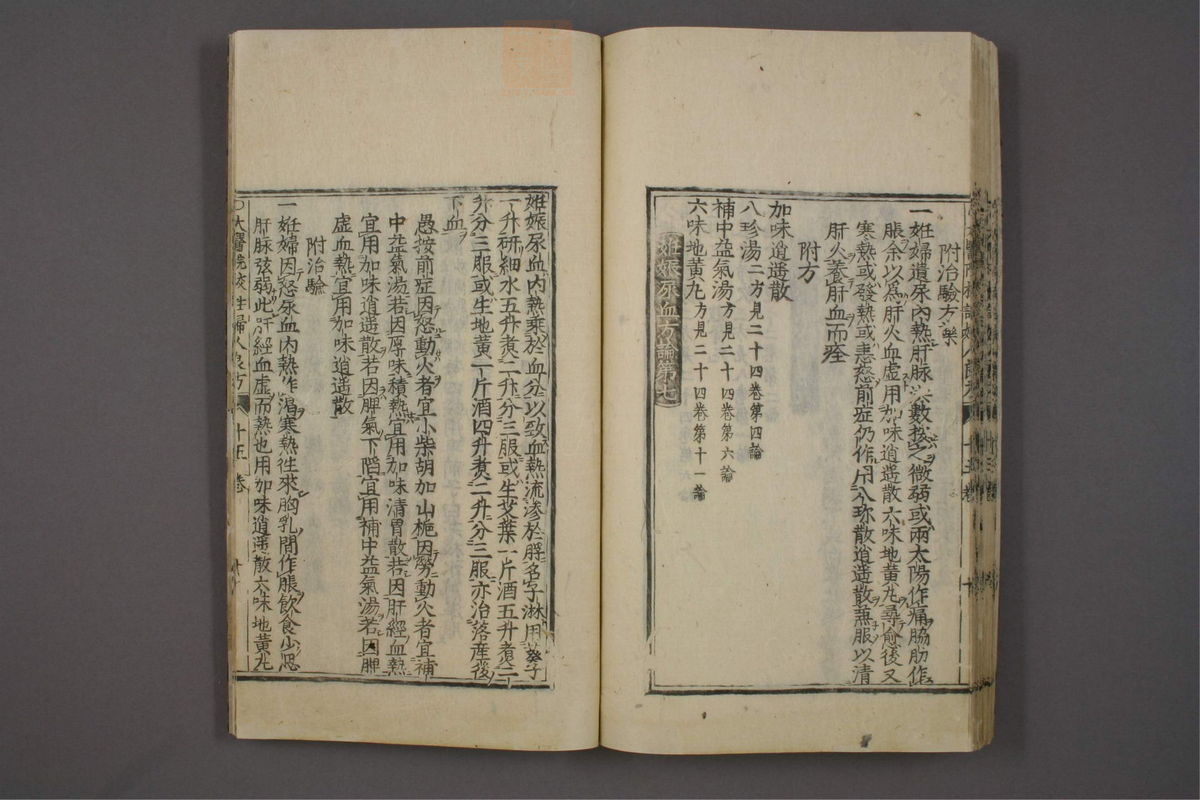 附治驗方藥
一妊婦遺尿內熱肝脉洪數按之微弱或兩太陽作痛脇肋作
脹余以爲肝火血虛用加味逍遙散六味地黃丸尋愈後又
寒熱或發熱或恚怒前症仍作用八珍散逍遙散兼服以清
肝火養肝血而痊
附方
加味逍遙散
八珍湯二方見二十四卷第四論
補中益氣湯方見二十四卷第六論
六味地黃丸方見二十四卷第十一論
妊娠尿血方論第七
妊娠尿血內熱乘於血分以致血熱流滲於脬名子淋用葵子
一升研細水五升煮二升分三服或生艾葉一斤酒五升煮二
升分三服或生地黃一斤酒四升煮二升分三服亦治落産後
下血
愚按前症因怒動火者宜小柴胡加山梔因勞動火者宜補
中益氣湯若因厚味積熱宜用加味清胃散若因肝經血熱
宜用加味逍遙散若因脾氣下陷宜用補中益氣湯若因脾
虛血熱宜用加味逍遙散
附治驗
一妊婦因怒尿血內熱作渴寒熱徃來胸乳間作脹飮食少思
肝脉弦弱此肝經血虛而熱也用加味逍遙散六味地黃丸
太醫院校註婦人良方 十五卷